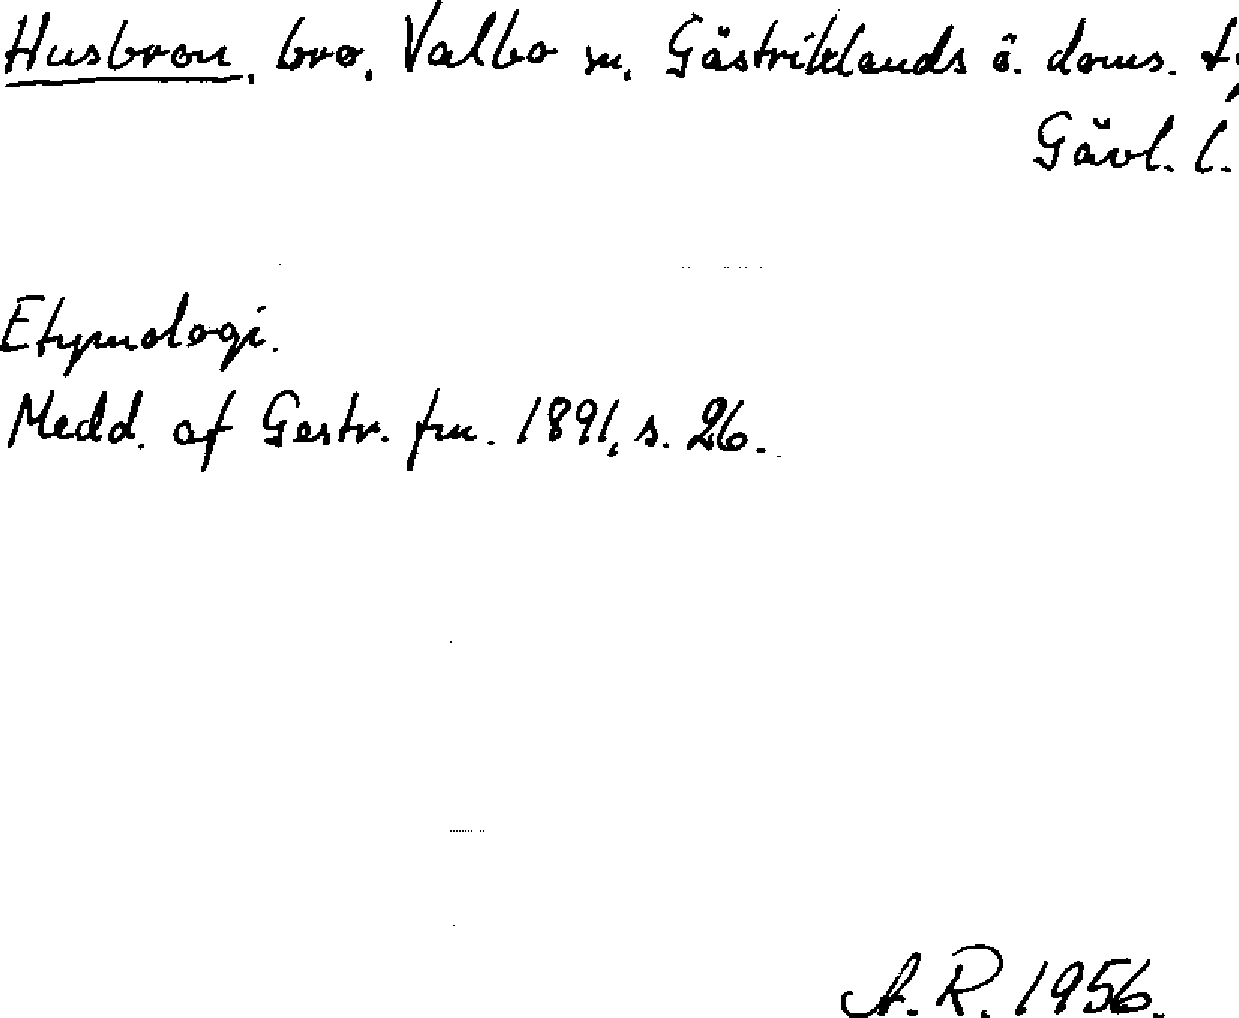 Husbron, bro, Valbo sn, Gästriklands ö. doms.
Gävl. l.
Etymologi.
Medd. af Gestr. fm. 1891, s. 26.
A. R. 1956.